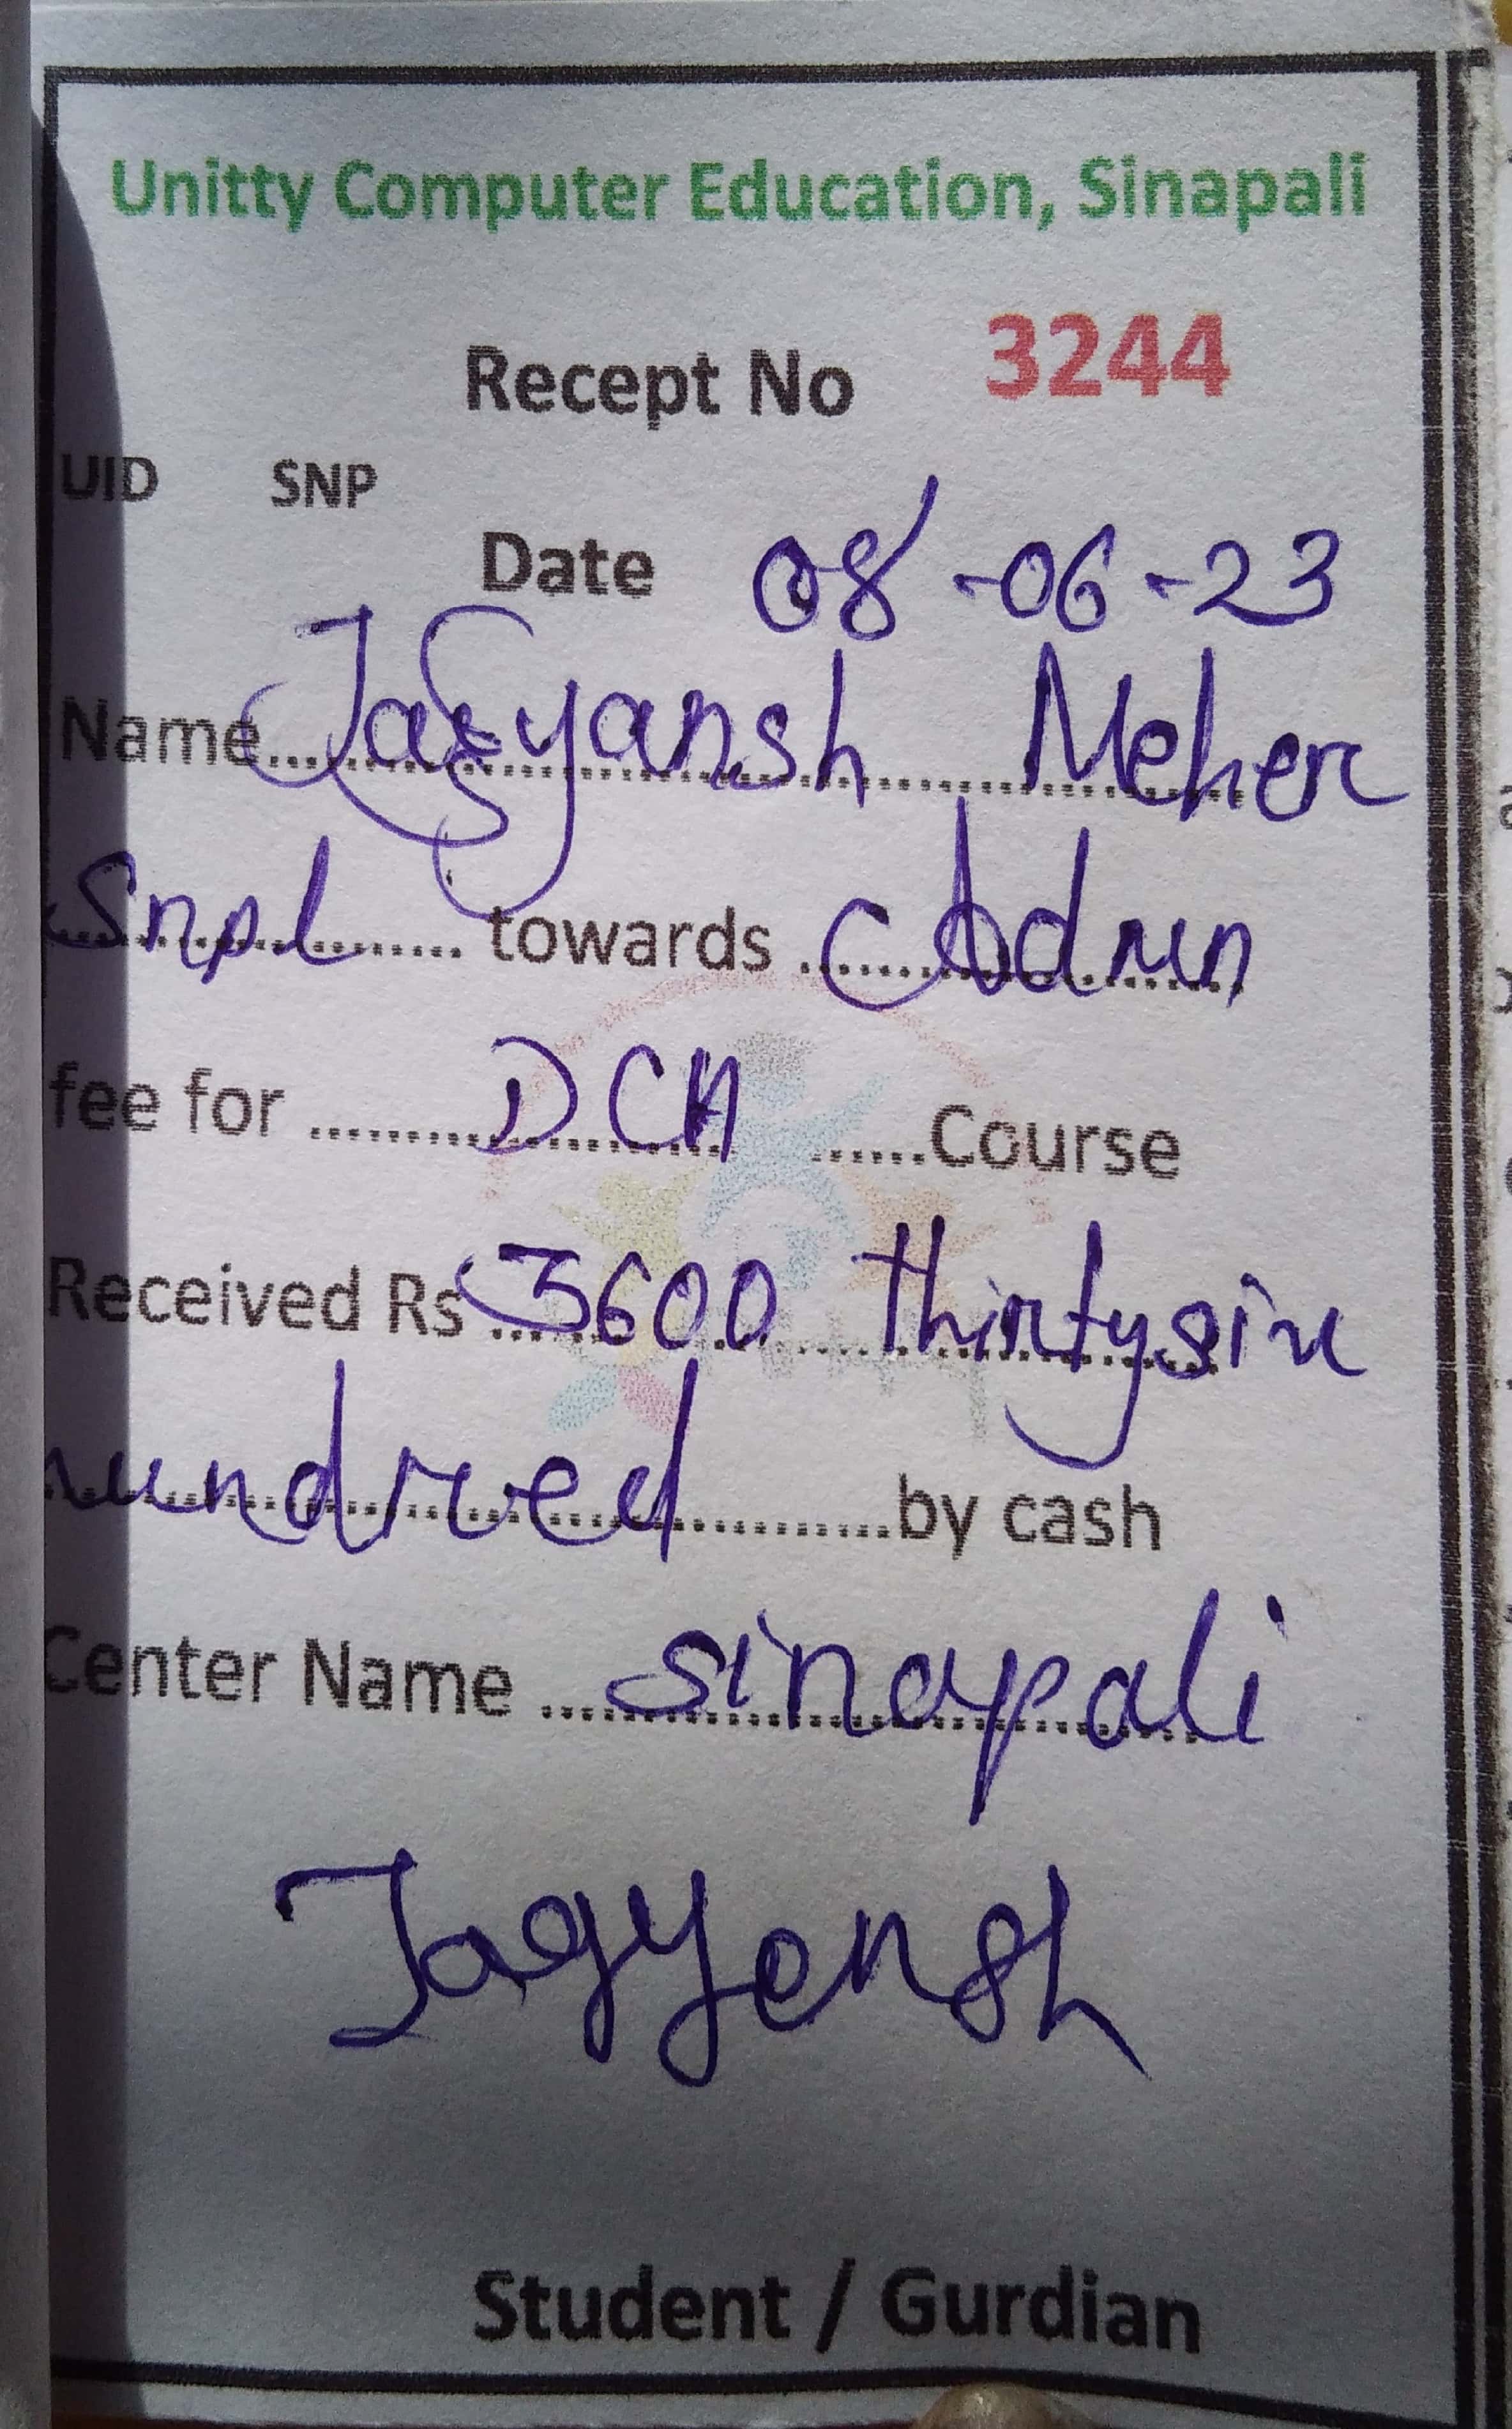 Unitty Computer Education, Sinapali
Recept No 3244
UID SNP
Date 08-06-23
Name Jagyansh Meher
Snpl towards Admn
fee for DCA Course
Received Rs 3600 Thirtysix
hundred by cash
Center Name Sinapali
Jagyansh
Student / Gurdian